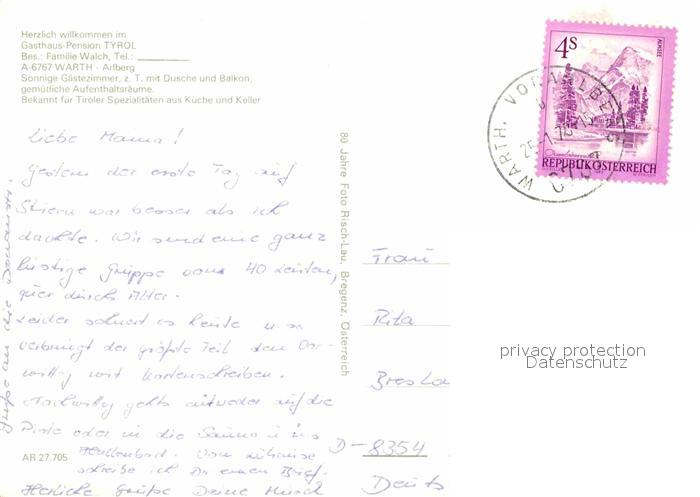 Herzlich willkommen im
Gasthaus-Pension TYROL
Bes.: Familie Walch, Tel.:
A-6767 WARTH - Arlberg
Sonnige Gästezimmer, z. T. mit Dusche und Balkon,
gemütliche Aufenthaltsräume.
Bekannt für Tiroler Spezialitäten aus Küche und Keller
Liebe Mama!
Gestern der erste Tag auf
Skiern war besser als ich
dachte. Wir sind eine ganz
lustige Gruppe von 40 Leuten,
quer durch Alter.
Leider schneit es heute u. so
verbringt der größte Teil den Vor-
mittag mit Kartenschreiben.
Nachmittag gehts entweder auf die
Piste oder in die Sauna u. ins
Hallenbad. Von zuhause
schreibe ich Dir einen Brief.
Herzliche Grüße Deine
Grüße an die
AR 27.705
80 Jahre Foto Risch-Lau, Bregenz, Österreich
4S
ALMSEE
REPUBLIK ÖSTERREICH
WARTH, VORARLBERG
Frau
Rita
D-8354
Deuts
privacy protection
Datenschutz